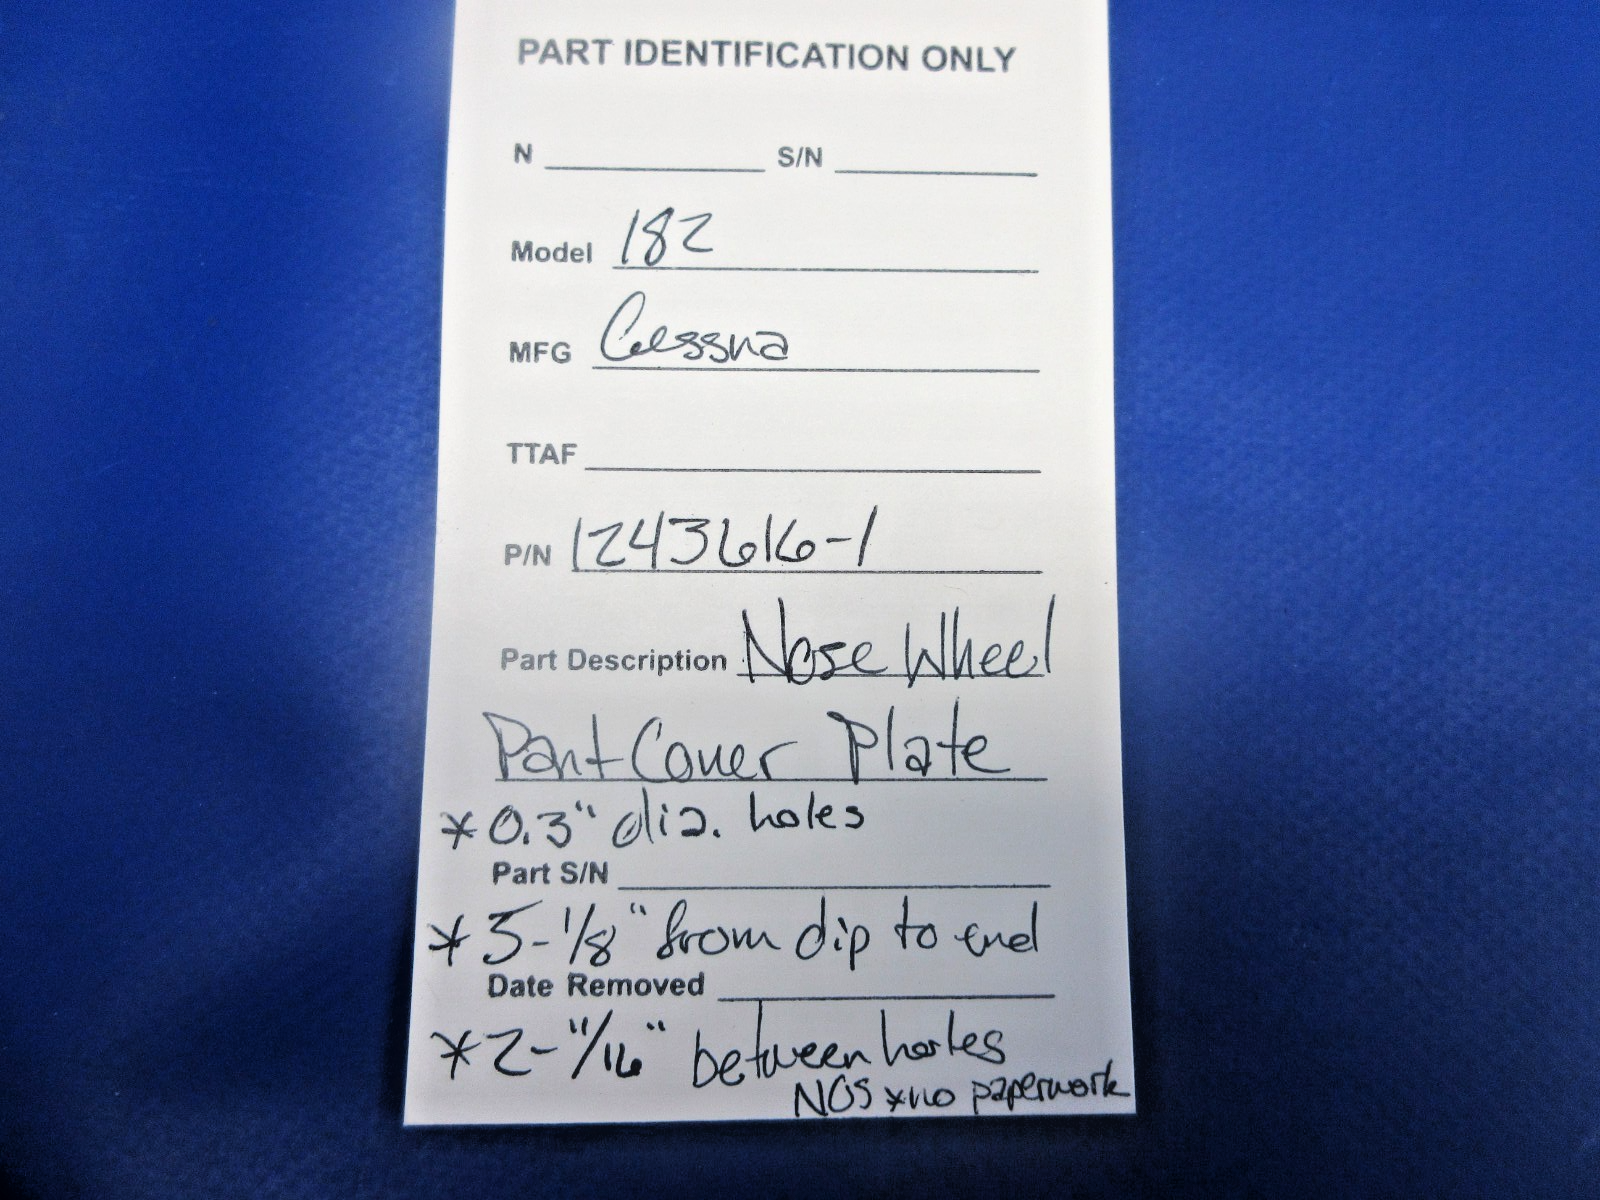 PART IDENTIFICATION ONLY
N S/N
Model 182
MFG Cessna
TTAF
P/N 1243616-1
Part Description Nose Wheel
Pant Cover Plate
*0.3" dia. holes
Part S/N
*5-1/8" from dip to end
Date Removed
*2-11/16" between holes
NOS *no paperwork